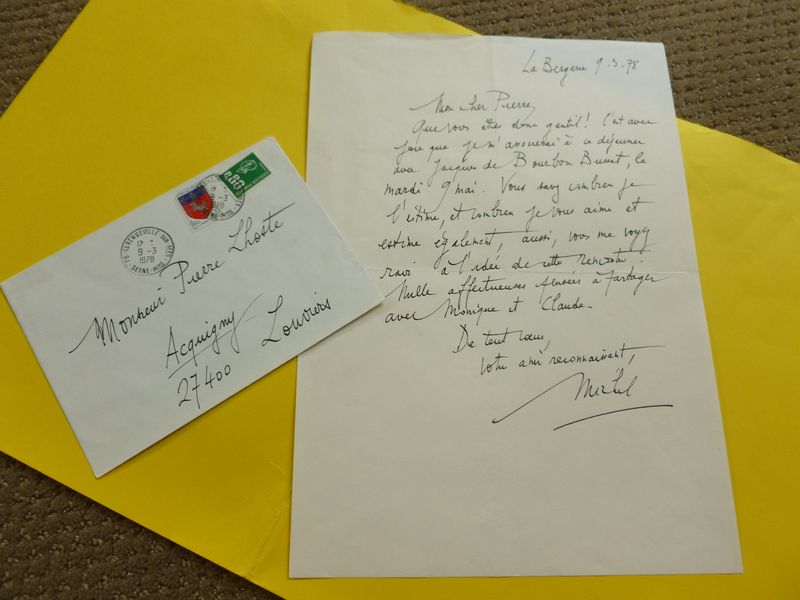 La Bergerie 9.3.78
Mon cher Pierre,
Que vous êtes donc gentil! C'est avec
joie que je m'associerai à ce déjeuner
avec Jacques de Bourbon Busset, le
mardi 9 mai. Vous savez combien je
l'estime, et combien je vous aime et
estime également, aussi, vous me voyez
ravi à l'idée de cette rencontre.
Mille affectueuses pensées à partager
avec Monique et Claude.
De tout cœur,
votre ami reconnaissant,
Michel
0.80
76 VARENGEVILLE-SUR-MER
9-3
1978
SEINE-MME
Monsieur Pierre Lhoste
Acquigny
27400 Louviers